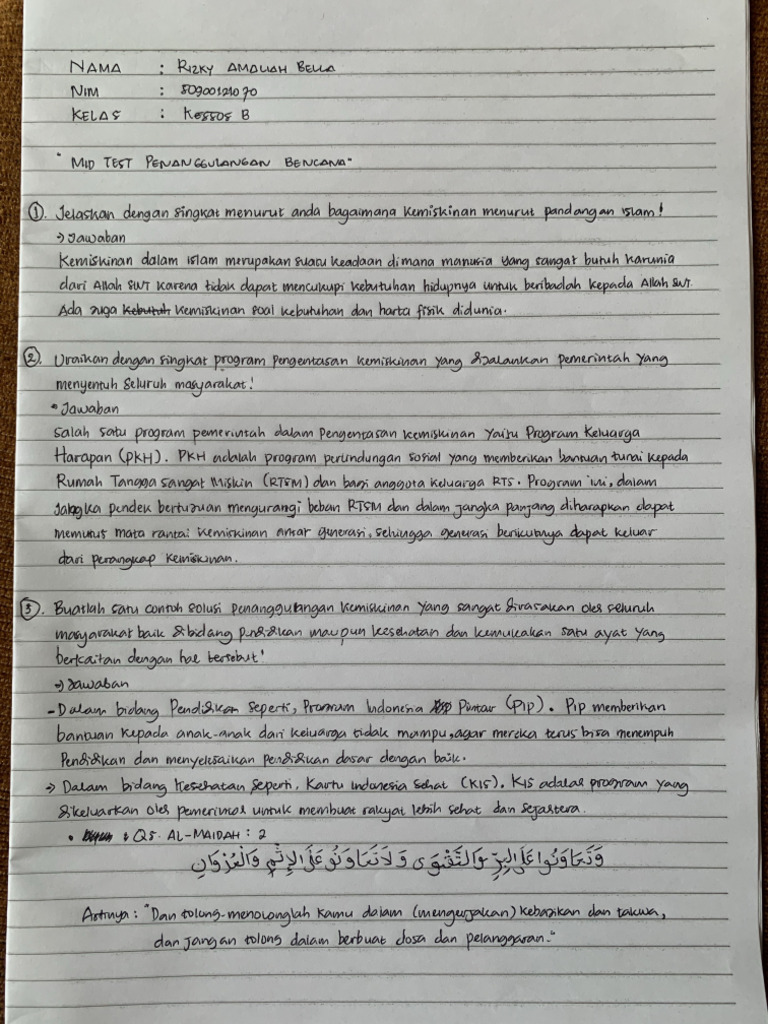 NAMA : RIZKY AMALIAH BELLA
NIM : 50900121070
KELAS : KESSOS B
" MID TEST PENANGGULANGAN BENCANA"
①. Jelaskan dengan singkat menurut anda bagaimana kemiskinan menurut pandangan islam!
→ Jawaban
Kemiskinan dalam islam merupakan suatu keadaan dimana manusia yang sangat butuh karunia
dari Allah SWT karena tidak dapat mencukupi kebutuhan hidupnya untuk beribadah kepada Allah SWT.
Ada juga kebutuh kemiskinan soal kebutuhan dan harta fisik didunia.
②. Uraikan dengan singkat program pengentasan kemiskinan yang dijalankan pemerintah yang
menyentuh seluruh masyarakat!
• Jawaban
Salah satu program pemerintah dalam pengentasan kemiskinan yaitu Program Keluarga
Harapan (PKH). PKH adalah program perlindungan sosial yang memberikan bantuan tunai kepada
Rumah Tangga Sangat Miskin (RTSM) dan bagi anggota keluarga RTS. Program ini, dalam
jangka pendek bertujuan mengurangi beban RTSM dan dalam jangka panjang diharapkan dapat
memutus mata rantai kemiskinan antar generasi, sehingga generasi berikutnya dapat keluar
dari perangkap kemiskinan.
③. Buatlah satu contoh solusi penanggulangan kemiskinan yang sangat dirasakan oleh seluruh
masyarakat baik dibidang pendidikan maupun kesehatan dan kemukakan satu ayat yang
berkaitan dengan hal tersebut!
→ Jawaban
- Dalam bidang Pendidikan seperti, Program Indonesia Pintar (PIP). PIP memberikan
bantuan kepada anak-anak dari keluarga tidak mampu, agar mereka terus bisa menempuh
Pendidikan dan menyelesaikan pendidikan dasar dengan baik.
→ Dalam bidang kesehatan seperti, Kartu Indonesia Sehat (KIS). KIS adalah program yang
dikeluarkan oleh pemerintah untuk membuat rakyat lebih sehat dan sejahtera.
• QS. AL-MAIDAH : 2
وَتَعَاوَنُوا عَلَى الْبِرِّ وَالتَّقْوَى وَلَا تَعَاوَنُوْ عَلَى الْإِثْمِ وَالْعُدْوَانِ
Artinya : "Dan tolong-menolonglah kamu dalam (mengerjakan) kebajikan dan takwa,
dan jangan tolong dalam berbuat dosa dan pelanggaran."